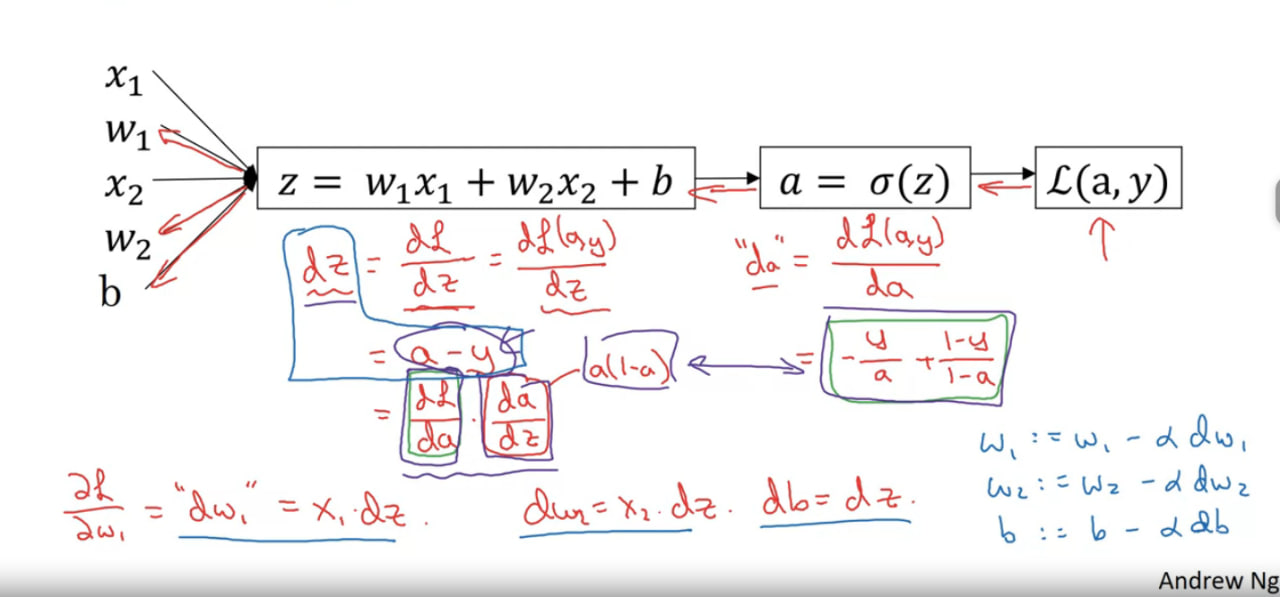 x₁
w₁
x₂
w₂
b
z = w₁x₁ + w₂x₂ + b
a = σ(z)
ℒ(a, y)
dz = dℒ/dz = dℒ(a,y)/dz
"da" = dℒ(a,y)/da
= a - y
a(1-a)
= -y/a + (1-y)/(1-a)
= dℒ/da · da/dz
∂ℒ/∂w₁ = "dw₁" = x₁·dz.
dw₂ = x₂·dz.
db = dz.
w₁ := w₁ - α dw₁
w₂ := w₂ - α dw₂
b := b - α db
Andrew Ng